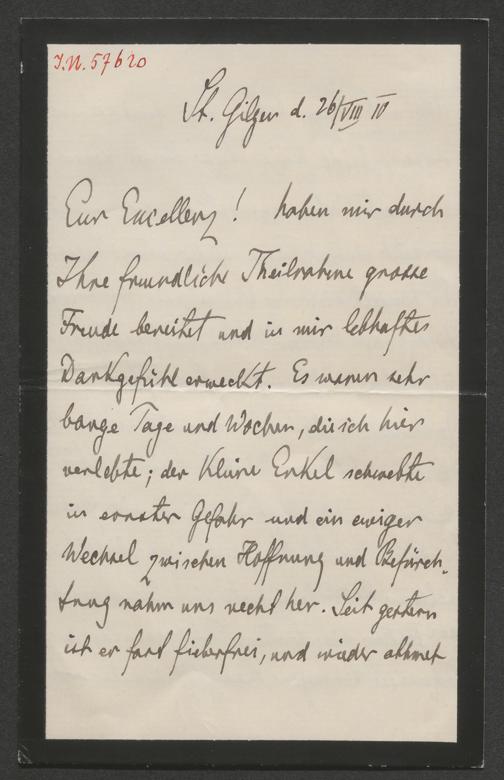 I.N. 57620
St. Gilgen d. 26/VIII IV
Eure Excellenz! haben mir durch
Ihre freundliche Theilnahme grosse
Freude bereitet und in mir lebhaftes
Dankgefühl erweckt. Es waren sehr
bange Tage und Wochen, die ich hier
verlebte; der kleine Enkel schwebte
in ernster Gefahr und ein ewiger
Wechsel zwischen Hoffnung und Befürch-
tung nahm uns recht her. Seit gestern
ist er fast fieberfrei, und wieder athmet